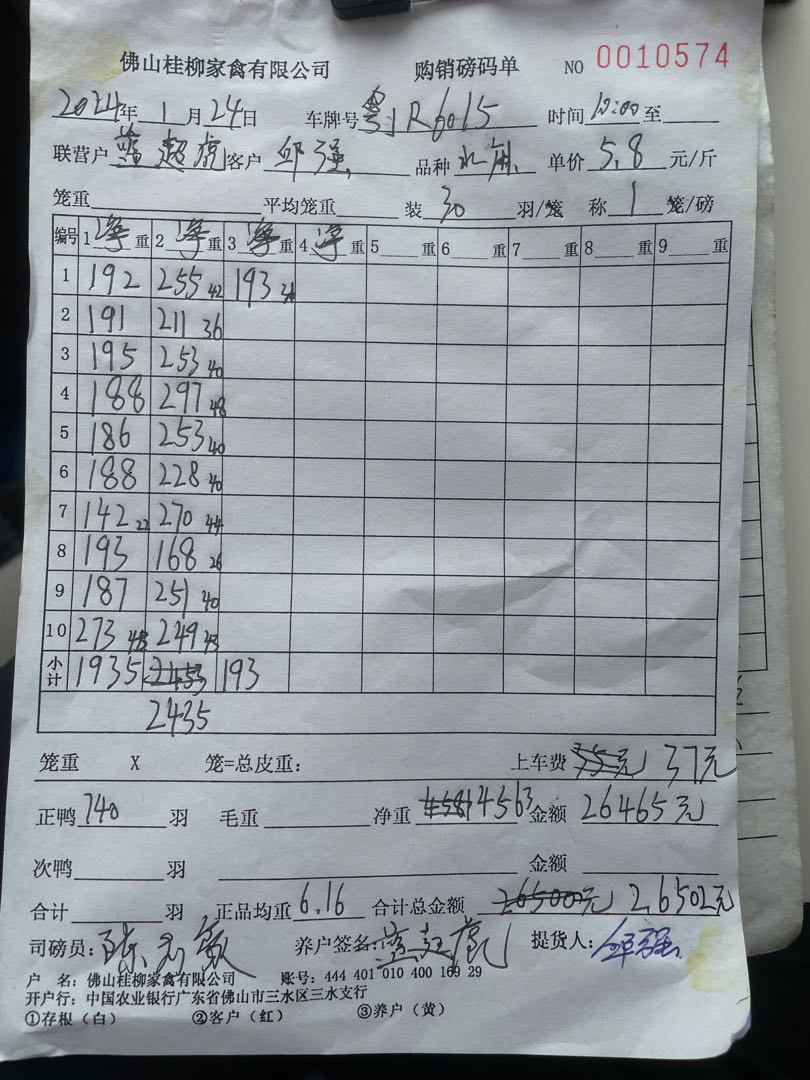 佛山桂柳家禽有限公司 购销磅码单 NO 0010574
2024年 1月24日 车牌号 粤JR6015 时间 12:00 至
联营户 蓝超虎 客户 邱强 品种 单价 5.8 元/斤
笼重 平均笼重 装 30 羽/笼 称 1 笼/磅
编号 1 净 重 2 净 重 3 净 重 4 净 重 5 重 6 重 7 重 8 重 9 重
1 192 255 42 193
2 191 211 36
3 195 253 40
4 188 297 48
5 186 253 40
6 188 228 40
7 142 22 270 44
8 193 168 26
9 187 251 40
10 273 48 249 43
小计 1935 2453 193
2435
笼重 X 笼=总皮重: 上车费 35元 37元
正鸭 740 羽 毛重 净重 4581 4563 金额 26465元
次鸭 羽 金额
合计 羽 正品均重 6.16 合计总金额 26500元 26502元
司磅员: 养户签名: 蓝超虎 提货人: 邱强
户 名: 佛山桂柳家禽有限公司 账号: 444 401 010 400 169 29
开户行: 中国农业银行广东省佛山市三水区三水支行
①存根(白) ②客户(红) ③养户(黄)